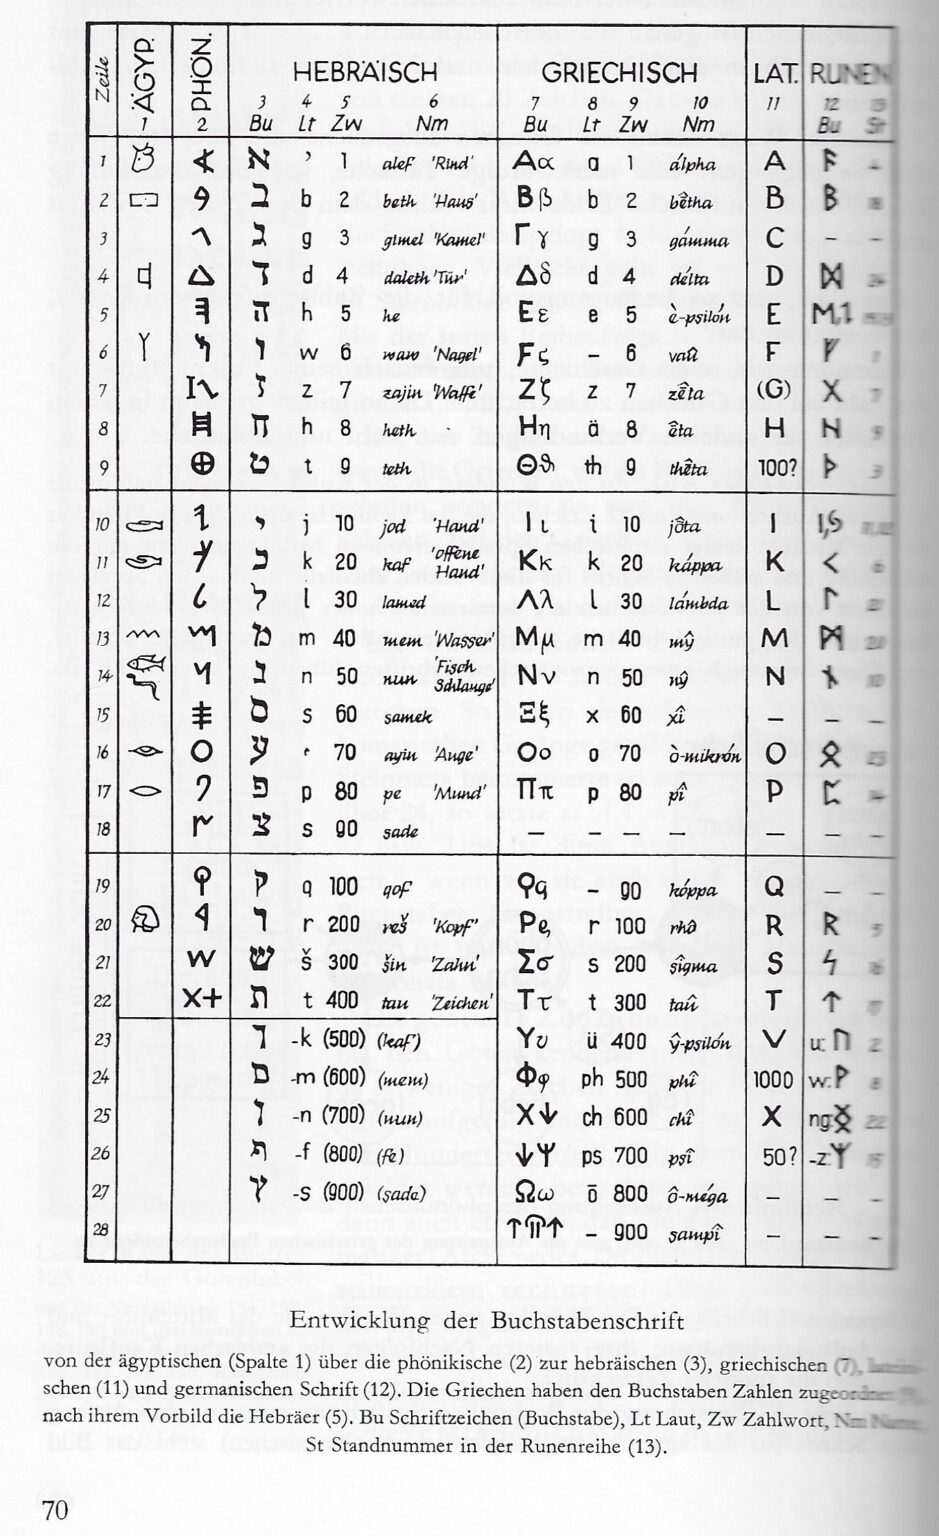 Zeile ÄGYP. PHÖN. HEBRÄISCH GRIECHISCH LAT. RUNEN
1 2 3 4 5 6 7 8 9 10 11 12 13
Bu Lt Zw Nm Bu Lt Zw Nm Bu St
1 א ʼ 1 alef 'Rind' Αα a 1 álpha A ᚨ 4
2 ב b 2 beth 'Haus' Ββ b 2 bêtha B ᛒ 18
3 ג g 3 gimel 'Kamel' Γγ g 3 gámma C – –
4 ד d 4 daleth 'Tür' Δδ d 4 délta D ᛞ 24
5 ה h 5 he Εε e 5 è-psilón E
6 ו w 6 waw 'Nagel' Ϝϛ – 6 vaû F ᚠ 1
7 ז z 7 zajin 'Waffe' Ζζ z 7 zêta (G) ᚷ 7
8 ח h 8 heth - Ηη ä 8 êta H ᚺ 9
9 ט t 9 teth Θϑ th 9 thêta 100? ᚦ 3
10 י j 10 jod 'Hand' Ιι i 10 jôta
11 כ k 20 kaf 'offene Hand' Κκ k 20 káppa K ᚲ 6
12 ל l 30 lamed Λλ l 30 lámbda L ᛚ 21
13 מ m 40 mem 'Wasser' Μμ m 40 mŷ M ᛗ 20
14 נ n 50 nun 'Fisch Schlange' Νν n 50 nŷ N ᚾ 10
15 ס s 60 samek Ξξ x 60 xî – – –
16 ע ʻ 70 ayin 'Auge' Οο o 70 ò-mikrón O ᛟ 23
17 פ p 80 pe 'Mund' Ππ p 80 pî P ᛈ 14
18 צ s 90 sade – – – – – – –
19 ק q 100 qof Ϙq – 90 kóppa Q – –
20 ר r 200 reš 'Kopf' Ρϱ r 100 rhô R ᚱ 5
21 ש š 300 šin 'Zahn' Σσ s 200 sîgma S ᛋ 16
22 ת t 400 tau 'Zeichen' Ττ t 300 taû T ᛏ 17
23 ך -k (500) (kaf) Υυ ü 400 ŷ-psilón V u: ᚢ 2
24 ם -m (600) (mem) Φφ ph 500 phî 1000 w: ᚹ 8
25 ן -n (700) (nun) Χ↓ ch 600 chî X ng: 22
26 -f (800) (fe) ↓Ψ ps 700 psî 50? -z: ᛉ 15
27 ץ -s (900) (sade) Ωω ō 800 ô-méga – – –
28 – 900 sampî – – –
Entwicklung der Buchstabenschrift
von der ägyptischen (Spalte 1) über die phönikische (2) zur hebräischen (3), griechischen (7), lateini-
schen (11) und germanischen Schrift (12). Die Griechen haben den Buchstaben Zahlen zugeordnet (9),
nach ihrem Vorbild die Hebräer (5). Bu Schriftzeichen (Buchstabe), Lt Laut, Zw Zahlwort, Nm Name,
St Standnummer in der Runenreihe (13).
70